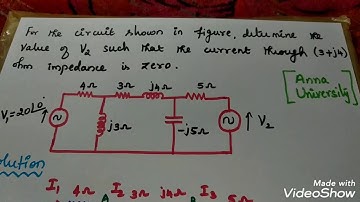 For the circuit shown in figure, determine the
value of V2 such that the current through (3+j4)
ohm impedance is zero.
[Anna
University]
4Ω 3Ω j4Ω 5Ω
V1=20∠0
j3Ω -j5Ω V2
Solution
I1 4Ω I2 3Ω j4Ω I3 5Ω
A B
Made with
VideoShow